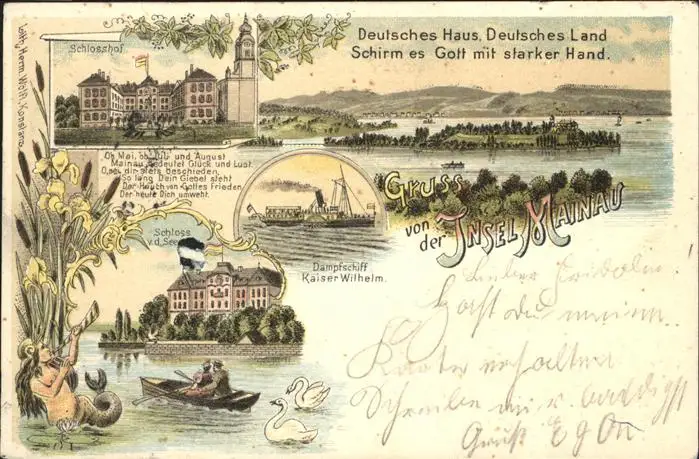 Lith. Herm. Wolf, Konstanz
Schlosshof
Deutsches Haus, Deutsches Land
Schirm es Gott mit starker Hand.
Ob Mai, ob Juli und August
Mainau bedeutet Glück und Lust.
O, sei dir stets beschieden,
So lang Dein Giebel steht
Der Hauch von Gottes Frieden
Der heute Dich umweht.
Gruss
von der Insel Mainau
Schloss
v. d. See
Dampfschiff
Kaiser Wilhelm.
Lieber
Hast du meine
Karte erhalten
Schreibe mir baldigst
Gruß